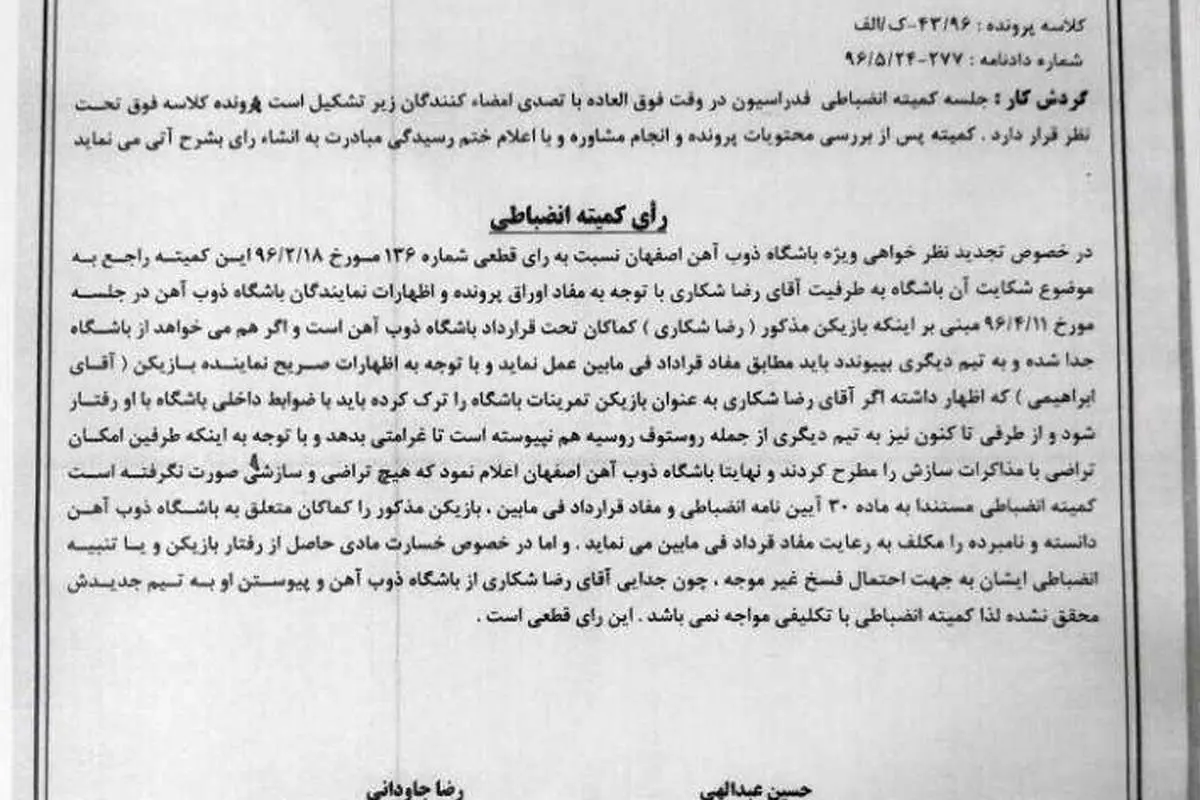 کلاسه پرونده : ۴۳/۹۶-ک/الف
شماره دادنامه : ۲۷۷-۹۶/۵/۲۴
گردش کار : جلسه کمیته انضباطی فدراسیون در وقت فوق العاده با تصدی امضاء کنندگان زیر تشکیل است پرونده کلاسه فوق تحت
نظر قرار دارد . کمیته پس از بررسی محتویات پرونده و انجام مشاوره و با اعلام ختم رسیدگی مبادرت به انشاء رای بشرح آتی می نماید
.
رأی کمیته انضباطی
در خصوص تجدید نظر خواهی ویژه باشگاه ذوب آهن اصفهان نسبت به رای قطعی شماره ۱۳۶ مورخ ۹۶/۲/۱۸ این کمیته راجع به
موضوع شکایت آن باشگاه به طرفیت آقای رضا شکاری با توجه به مفاد اوراق پرونده و اظهارات نمایندگان باشگاه ذوب آهن در جلسه
مورخ ۹۶/۴/۱۱ مبنی بر اینکه بازیکن مذکور ( رضا شکاری ) کماکان تحت قرارداد باشگاه ذوب آهن است و اگر هم می خواهد از باشگاه
جدا شده و به تیم دیگری بپیوندد باید مطابق مفاد قراداد فی مابین عمل نماید و با توجه به اظهارات صریح نماینده بازیکن ( آقای
ابراهیمی ) که اظهار داشته اگر آقای رضا شکاری به عنوان بازیکن تمرینات باشگاه را ترک کرده باید با ضوابط داخلی باشگاه با او رفتار
شود و از طرفی تا کنون نیز به تیم دیگری از جمله روستوف روسیه هم نپیوسته است تا غرامتی بدهد و با توجه به اینکه طرفین امکان
تراضی با مذاکرات سازش را مطرح کردند و نهایتا باشگاه ذوب آهن اصفهان اعلام نمود که هیچ تراضی و سازشی صورت نگرفته است
کمیته انضباطی مستندا به ماده ۳۰ آیین نامه انضباطی و مفاد قرارداد فی مابین ، بازیکن مذکور را کماکان متعلق به باشگاه ذوب آهن
دانسته و نامبرده را مکلف به رعایت مفاد قرداد فی مابین می نماید . و اما در خصوص خسارت مادی حاصل از رفتار بازیکن و یا تنبیه
انضباطی ایشان به جهت احتمال فسخ غیر موجه ، چون جدایی آقای رضا شکاری از باشگاه ذوب آهن و پیوستن او به تیم جدیدش
محقق نشده لذا کمیته انضباطی با تکلیفی مواجه نمی باشد . این رای قطعی است .
حسین عبدالهی رضا جاودانی